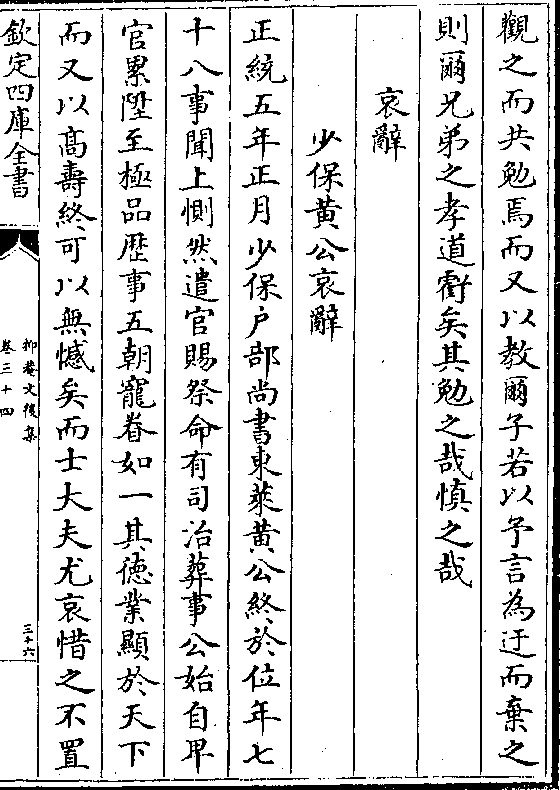 觀之而共勉焉而又以教爾子若以予言為迂而棄之
則爾兄弟之孝道虧矣其勉之哉慎之哉
哀辭
少保黃公哀辭
正統五年正月少保户部尚書東萊黃公終於位年七
十八事聞上惻然遣官賜祭命有司治葬事公始自卑
官累陞至極品歴事五朝寵眷如一其徳業顯於天下
而又以髙壽終可以無憾矣而士大夫尤哀惜之不置
欽定四庫全書
抑菴文後集
卷三十四
三十六